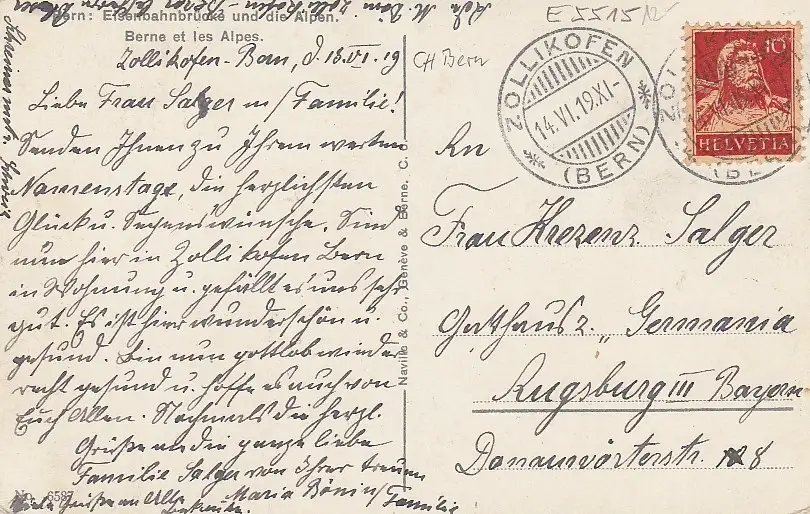 Bern: Eisenbahnbrücke und die Alpen.
Berne et les Alpes.
Zollikofen-Bern, d. 13.VI.19
Liebe Frau Salger m/Familie!
Senden Ihnen zu Ihrem werten
Namenstage, die herzlichsten
Glück u. Segenswünsche. Sind
nun hier in Zollikofen Bern
in Wohnung u. gefällt es uns sehr
gut. Es ist hier wunderschön u.
gesund. Bin nun gottlob wieder
recht gesund u. hoffe es auch von
Euch Allen. Nochmals die herzl.
Grüße an die ganze liebe
Familie Salger von Ihrer treuen
Maria Bönin/Familie
Viele Grüße an Alle
No. 6587
Naville & Co., Genève & Berne. C.
CH Bern
E 5515/2
ZOLLIKOFEN
14.VI.19.XI-
(BERN)
10
HELVETIA
An
Frau Krezenz Salger
Gasthaus z. „Germania
Augsburg III Bayern
Donauwörterstr. 8